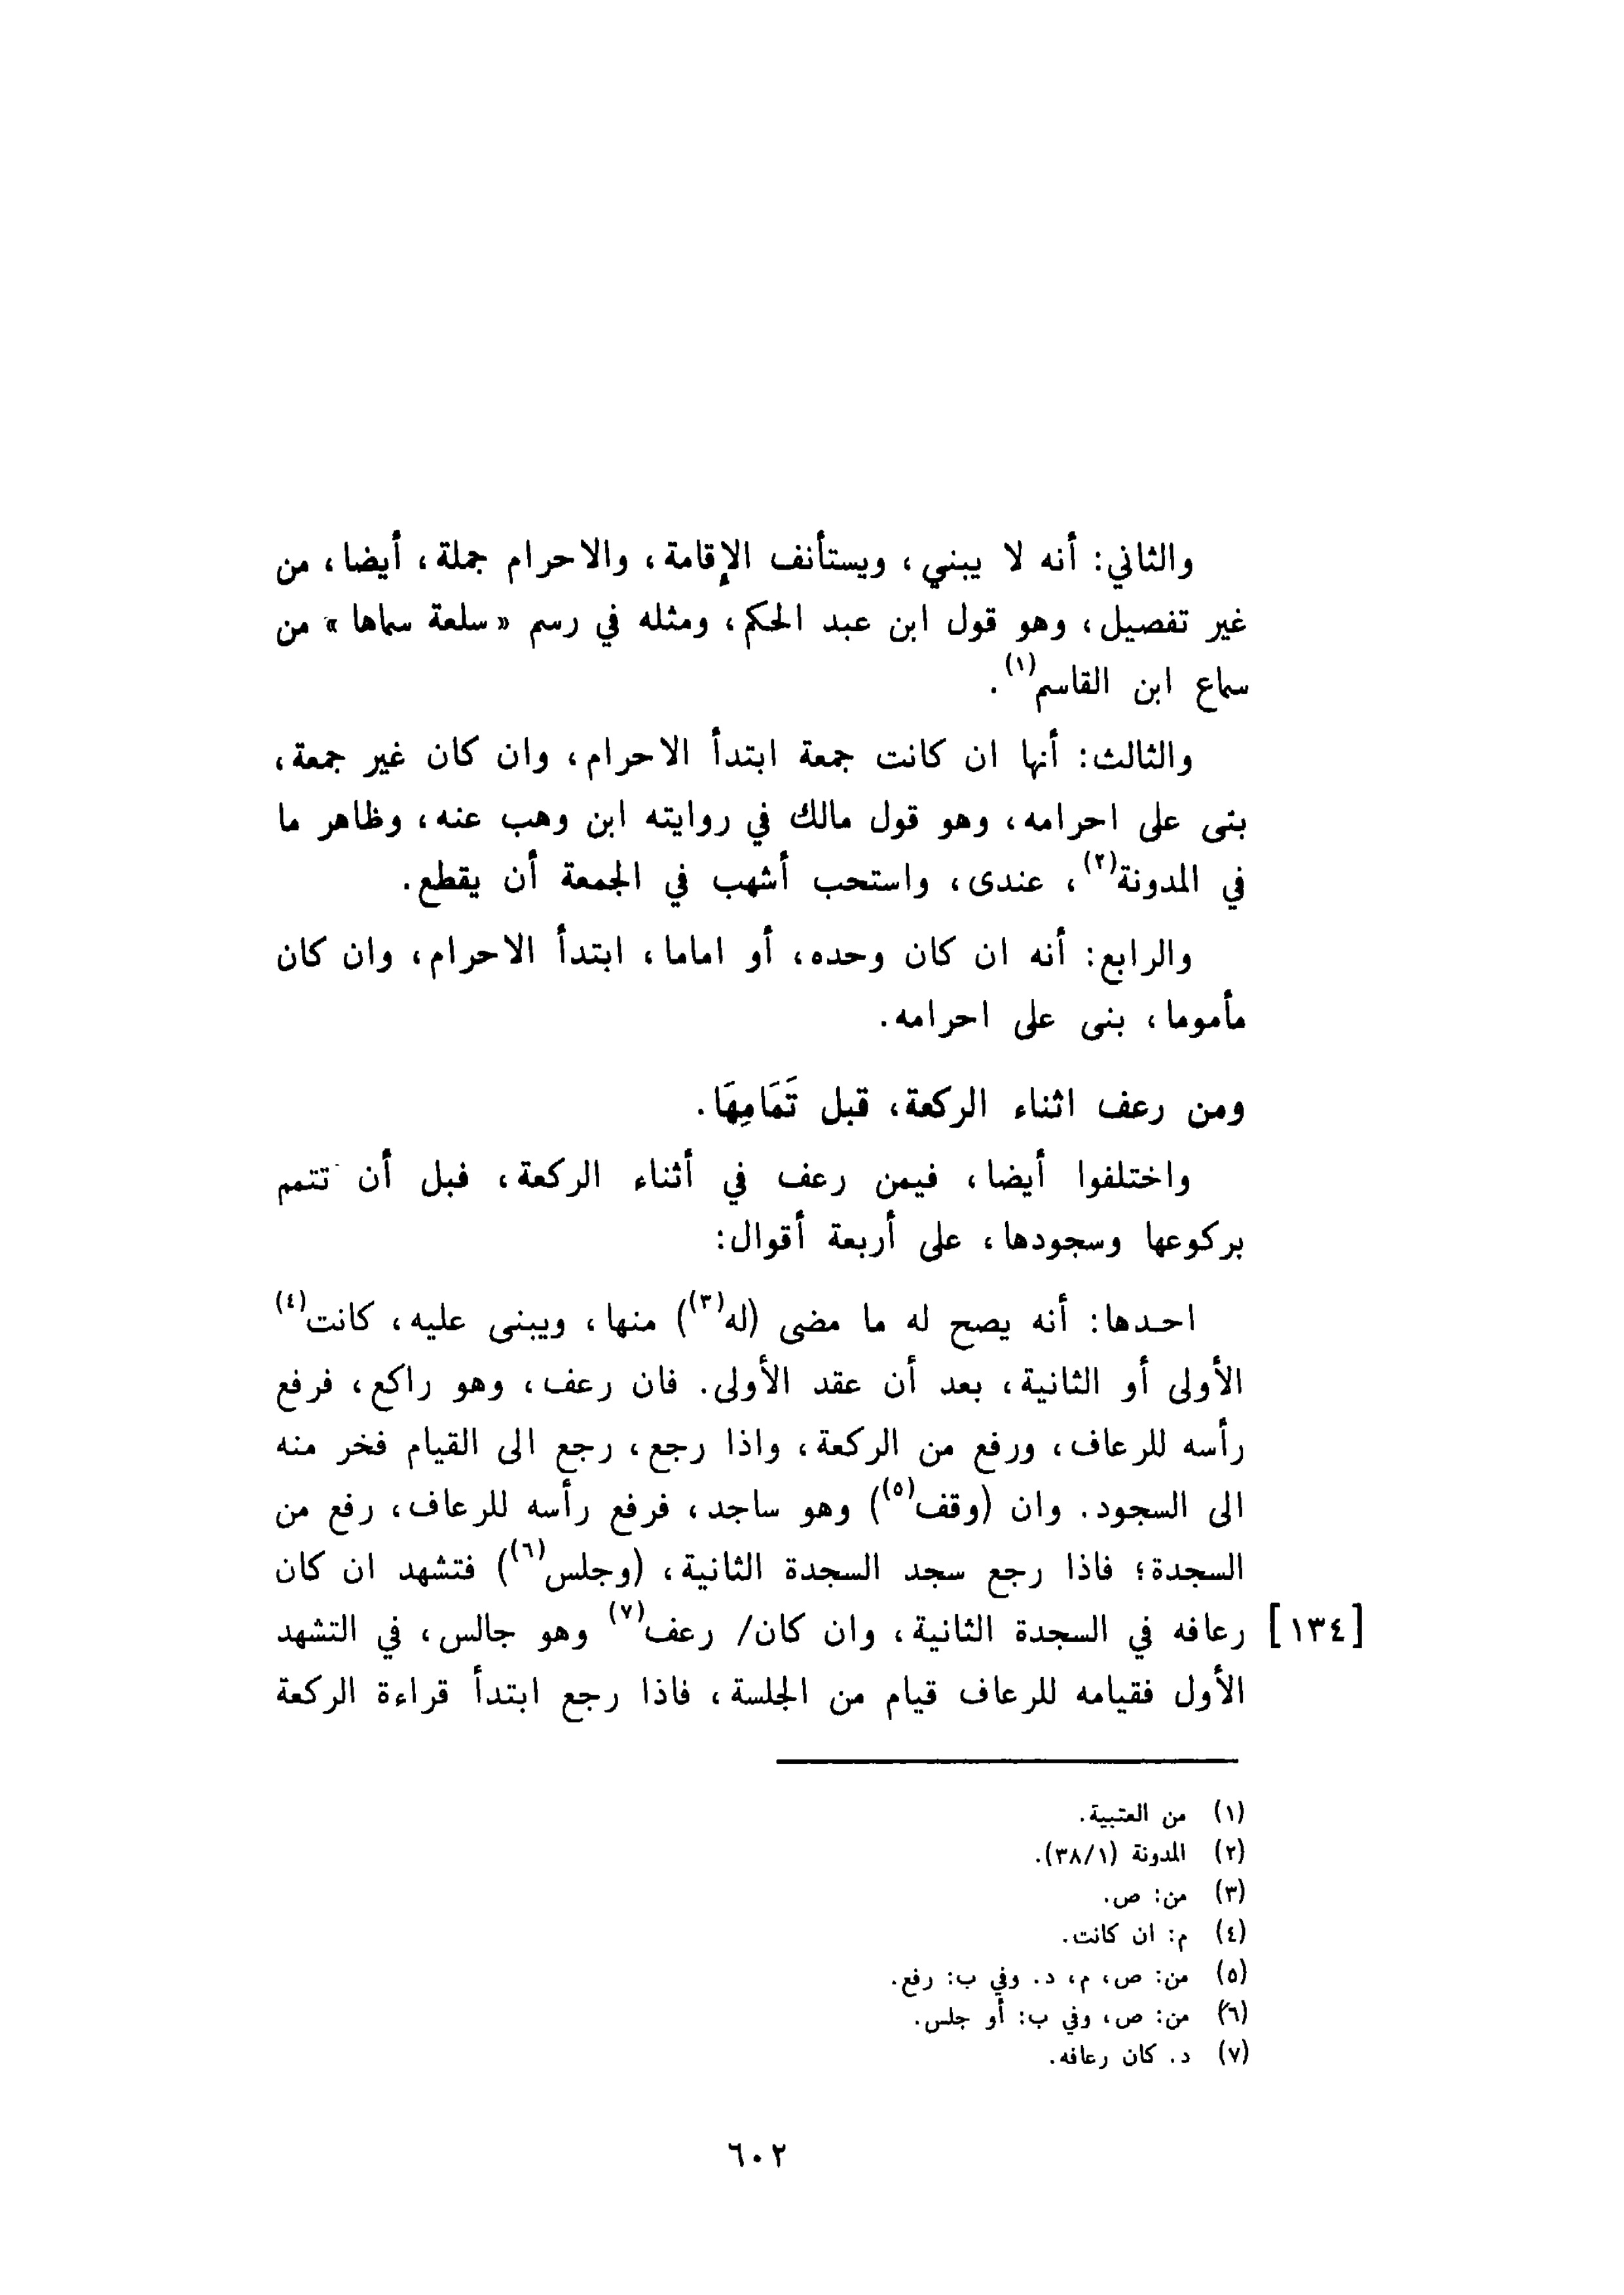 والثاني: أنه لا يبني، ويستأنف الإقامة، والاحرام جملة، أيضا، من
غير تفصيل، وهو قول ابن عبد الحكم، ومثله في رسم «سلعة سماها» من
سماع ابن القاسم(١).
والثالث: أنها ان كانت جمعة ابتدأ الاحرام، وان كان غير جمعة،
بنى على احرامه، وهو قول مالك في روايته ابن وهب عنه، وظاهر ما
في المدونة(٢)، عندى، واستحب أشهب في الجمعة أن يقطع.
والرابع: أنه ان كان وحده، أو اماما، ابتدأ الاحرام، وان كان
مأموما، بنى على احرامه.
ومن رعف اثناء الركعة، قبل تَمَامِهَا.
واختلفوا أيضا، فيمن رعف في أثناء الركعة، فبل أن تتمم
بركوعها وسجودها، على أربعة أقوال:
احدها: أنه يصح له ما مضى (له(٣)) منها، ويبنى عليه، كانت(٤)
الأولى أو الثانية، بعد أن عقد الأولى. فان رعف، وهو راكع، فرفع
رأسه للرعاف، ورفع من الركعة، واذا رجع، رجع الى القيام فخر منه
الى السجود. وان (وقف(٥)) وهو ساجد، فرفع رأسه للرعاف، رفع من
السجدة؛ فاذا رجع سجد السجدة الثانية، (وجلس(٦)) فتشهد ان كان
[١٣٤] رعافه في السجدة الثانية، وان كان/ رعف(٧) وهو جالس، في التشهد
الأول فقيامه للرعاف قيام من الجلسة، فاذا رجع ابتدأ قراءة الركعة
(١) من العتبية.
(٢) المدونة (٣٨/١).
(٣) من: ص.
(٤) م: ان كانت.
(٥) من: ص، م، د. وفي ب: رفع.
(٦) من: ص، وفي ب: أو جلس.
(٧) د. كان رعافه.
٦٠٢